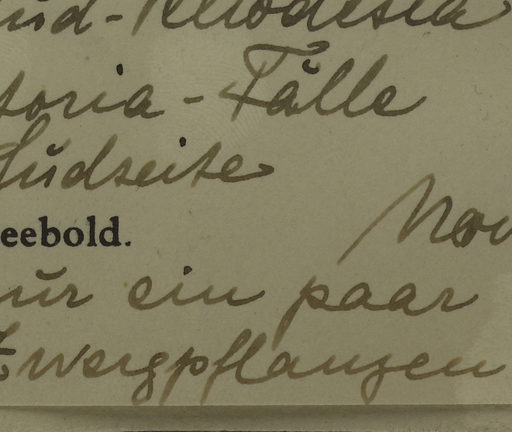 üd-Rhodesia
toria-Fälle
Südseite
eebold. Nov
ur ein paar
Zwergpflanzen